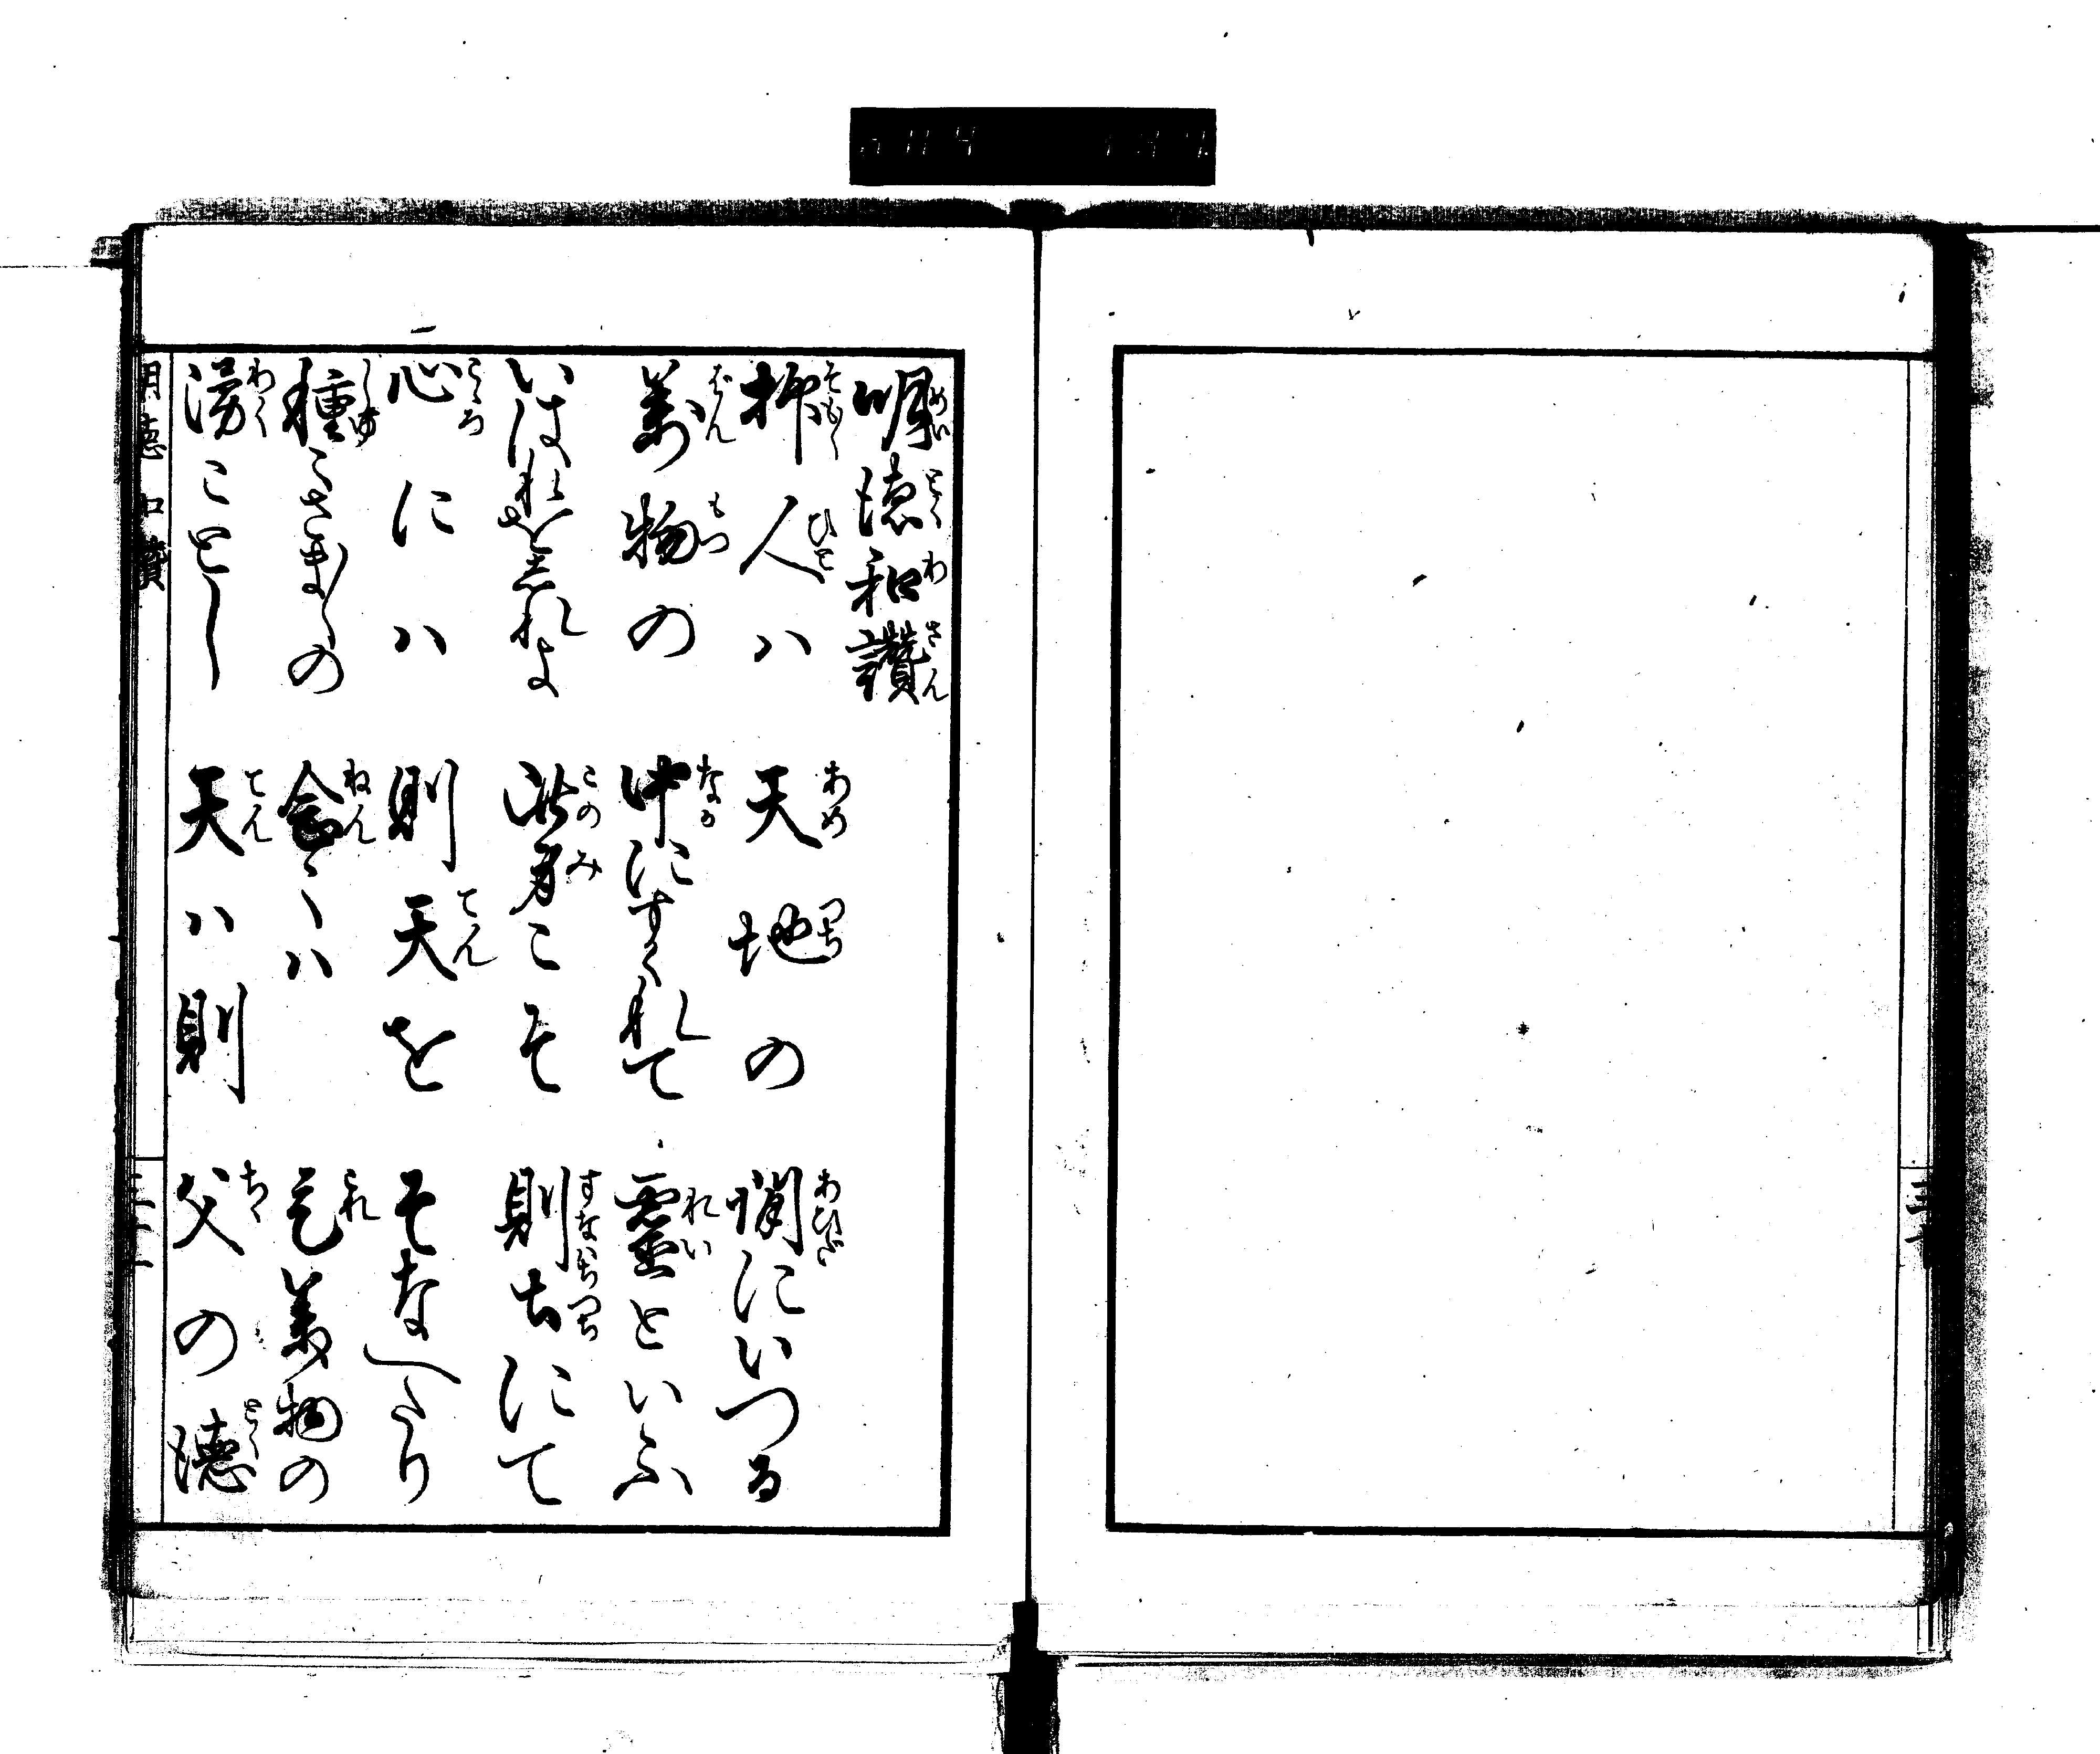 明徳和讃
抑人ハ　天地の　間にいつる
萬物の　中にすくれて　霊といふ
いはれを志れよ　此身こそ　則土にて
心にハ　則天を　そなへたり
種〻さま〴〵の　念〻ハ　是萬物の
湧ことし　天ハ則　父の徳
明徳和讃